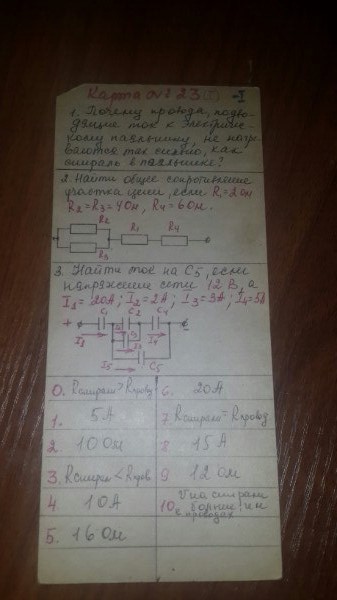 Карта №23 -I
1. Почему провода, подво-
дящие ток к электричес-
кому паяльнику, не нагре-
ваются так сильно, как
спираль в паяльнике?
2. Найти общее сопротивление
участка цепи, если R1=2 ом
R2=R3=4 ом, R4=6 ом.
R2
R1 R4
R3
3. Найти ток на C5, если
напряжение сети 12 В, а
I1=20А; I2=2А; I3=3А; I4=5А
+ C1 C2 C4
I1
I5 C5
0. Rспирали > Rпровод 6. 20А
1. 5А 7 Rспирали = Rпровод
2 10 ом 8 15 А
3. Rспирал < Rпров 9 12 ом
4. 10А 10. U на спирали
больше чем
в проводах
5. 16 ом